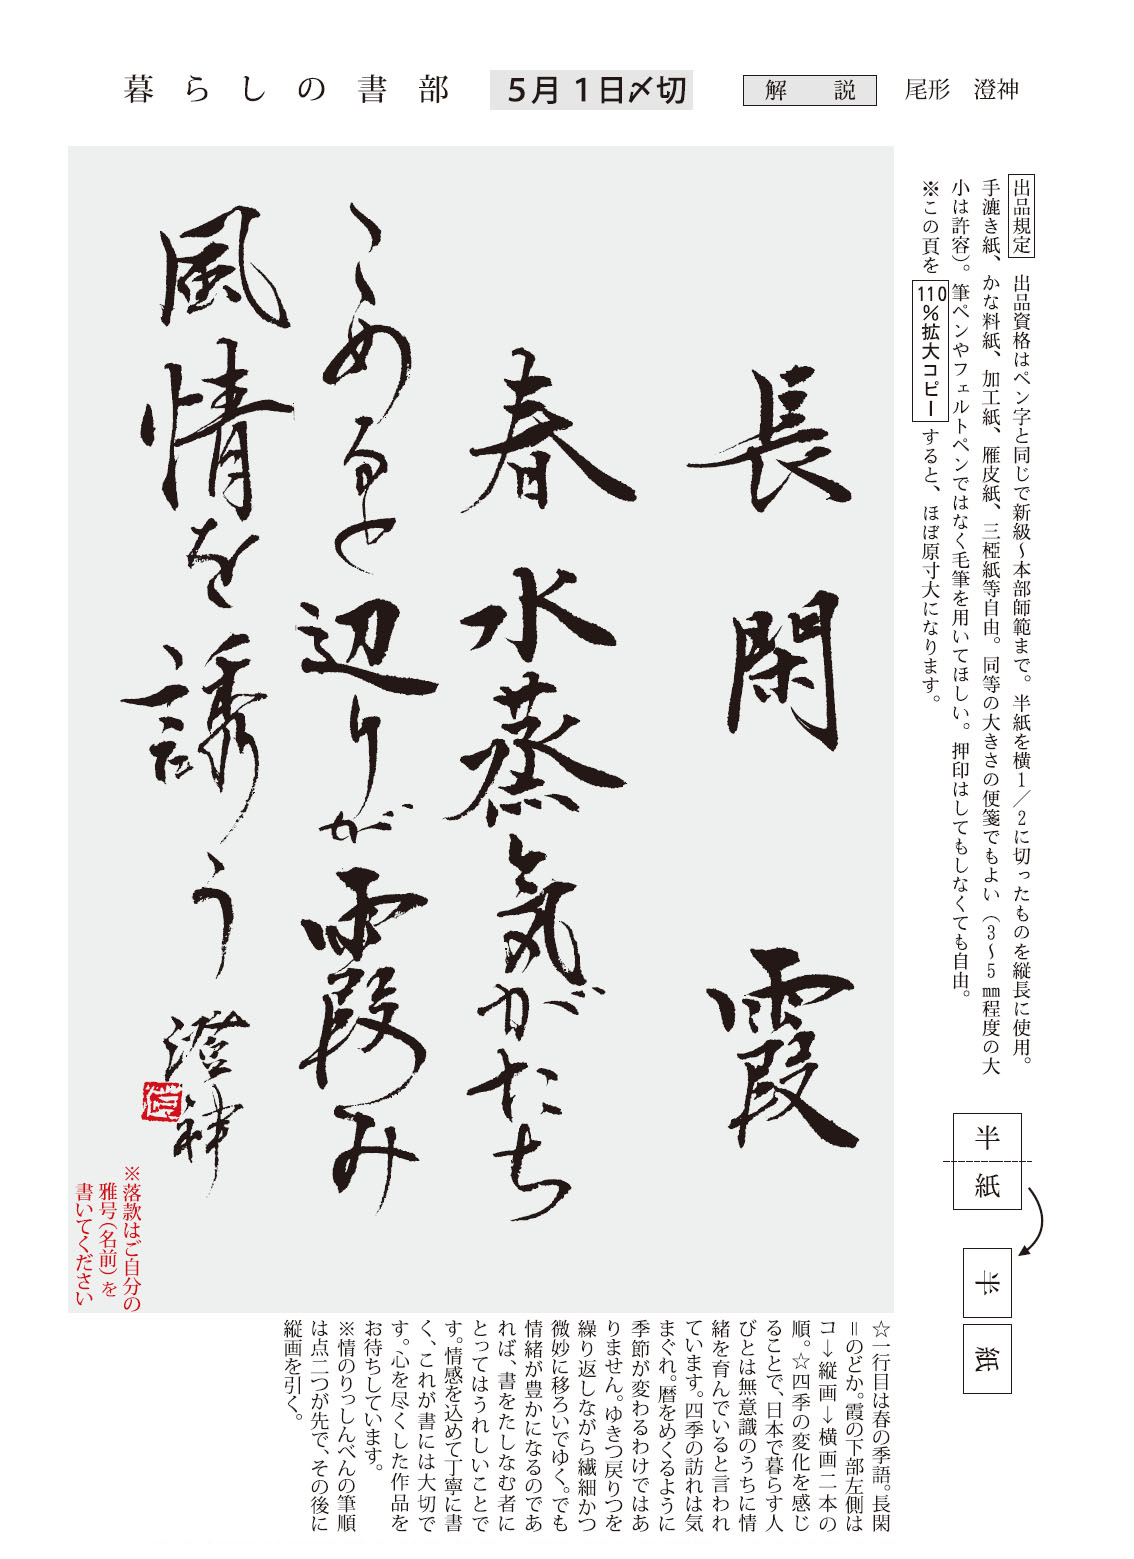 暮らしの書部
5月1日〆切
解 説
尾形 澄神
出品規定 出品資格はペン字と同じで新級~本部師範まで。半紙を横1/2に切ったものを縦長に使用。
手漉き紙、かな料紙、加工紙、雁皮紙、三椏紙等自由。同等の大きさの便箋でもよい(3~5㎜程度の大
小は許容)。筆ペンやフェルトペンではなく毛筆を用いてほしい。押印はしてもしなくても自由。
※この頁を110%拡大コピーすると、ほぼ原寸大になります。
半
紙
半
紙
長閑 霞
春水蒸気がたち
こめると辺りが霞み
風情を誘う 澄神
※落款はご自分の
雅号(名前)を
書いてください
☆一行目は春の季語。長閑
=のどか。霞の下部左側は
コ→縦画→横画二本の
順。☆四季の変化を感じ
ることで、日本で暮らす人
びとは無意識のうちに情
緒を育んでいると言われ
ています。四季の訪れは気
まぐれ。暦をめくるように
季節が変わるわけではあ
りません。ゆきつ戻りつを
繰り返しながら繊細かつ
微妙に移ろいでゆく。でも
情緒が豊かになるのであ
れば、書をたしなむ者に
とってはうれしいことで
す。情感を込めて丁寧に書
く、これが書には大切で
す。心を尽くした作品を
お待ちしています。
※情のりっしんべんの筆順
は点二つが先で、その後に
縦画を引く。